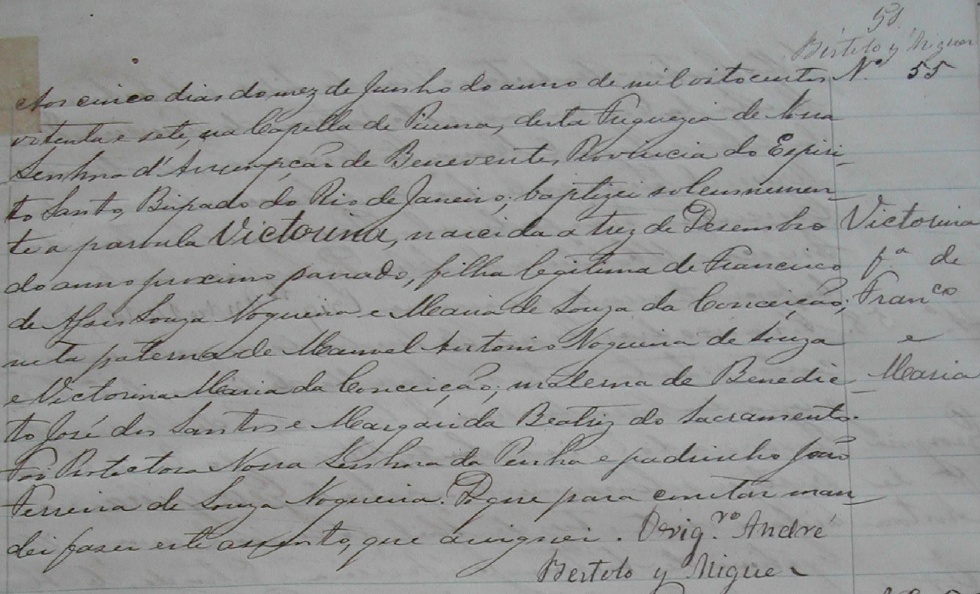 58
Bertolo y Niguer
Aos cinco dias do mez de Junho do anno de mil oitocentos Nº 55
oitenta e sete, na Capella de Piuma, desta Freguezia de Nossa
Senhora d'Assumpção de Benevente, Provincia do Espiri-
to Santo, Bispado do Rio de Janeiro; baptizei solemnemen-
te a parvula Victorina, nascida a trez de Desembro
do anno proximo passado, filha legitima de Francisco
de Assis Souza Nogueira e Maria de Souza da Conceição;
neta paterna de Manoel Antonio Nogueira de Souza
e Victorina Maria da Conceição; materna de Benedic-
to José dos Santos e Margarida Beatriz do Sacramento.
Foi Protectora Nossa Senhora da Penha e padrinho João
Ferreira de Souza Nogueira. Do que para constar man-
dei faser este assento, que assignei. O vigrº André
Bertolo y Niguer
Victorina
fª de
Franco
e
Maria